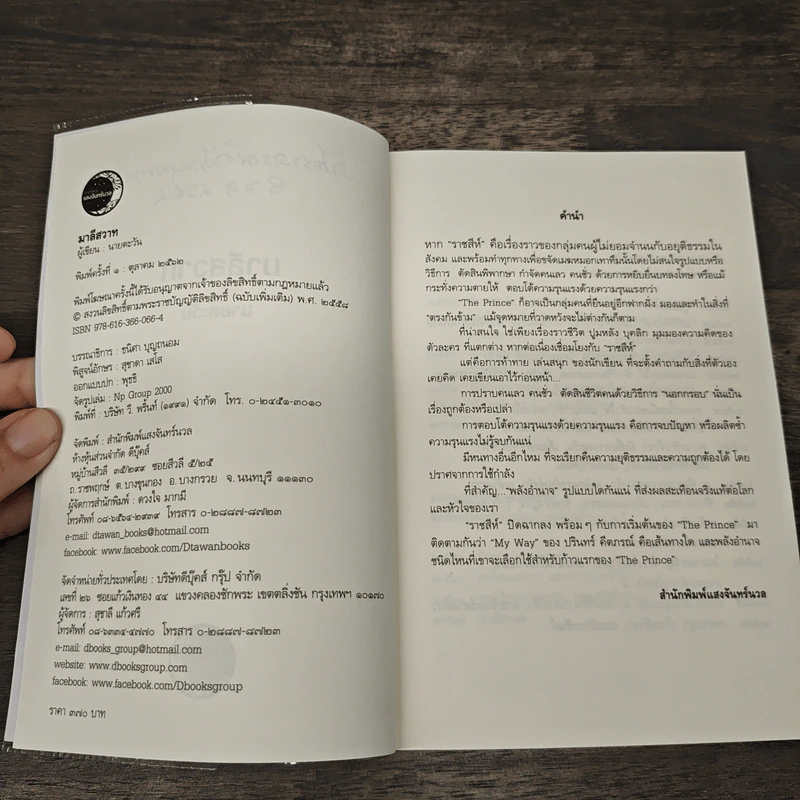 แสงจันทร์นวล
มาลีสวาท
ผู้เขียน : นายตะวัน
พิมพ์ครั้งที่ ๑ : ตุลาคม ๒๕๖๒
พิมพ์โฆษณาครั้งนี้ได้รับอนุญาตจากเจ้าของลิขสิทธิ์ตามกฎหมายแล้ว
© สงวนลิขสิทธิ์ตามพระราชบัญญัติลิขสิทธิ์ (ฉบับเพิ่มเติม) พ.ศ. ๒๕๕๘
ISBN 978-616-366-066-4
บรรณาธิการ : ชนิศา บุญถนอม
พิสูจน์อักษร : สุชาดา เสใส
ออกแบบปก : พุชชิ
จัดรูปเล่ม : Np Group 2000
พิมพ์ที่ : บริษัท วี. พริ้นท์ (๑๙๙๑) จำกัด โทร. ๐-๒๔๕๑-๓๐๑๐
จัดพิมพ์ : สำนักพิมพ์แสงจันทร์นวล
ห้างหุ้นส่วนจำกัด ดีบุ๊คส์
หมู่บ้านสีวลี ๓๕/๒๙๙ ซอยสีวลี ๕/๒๕
ถ.ราชพฤกษ์ ต.บางขุนกอง อ.บางกรวย จ.นนทบุรี ๑๑๑๓๐
ผู้จัดการสำนักพิมพ์ : ดวงใจ มากมี
โทรศัพท์ ๐๘-๖๕๖๔-๒๙๓๙ โทรสาร ๐-๒๘๘๗-๘๗๒๓
e-mail: dtawan_books@hotmail.com
facebook: www.facebook.com/Dtawanbooks
จัดจำหน่ายทั่วประเทศโดย : บริษัทดีบุ๊คส์ กรุ๊ป จำกัด
เลขที่ ๒๖ ซอยแก้วเงินทอง ๔๔ แขวงคลองชักพระ เขตตลิ่งชัน กรุงเทพฯ ๑๐๑๗๐
ผู้จัดการ : สุชาลี แก้วศรี
โทรศัพท์ ๐๘-๖๓๓๔-๔๗๗๐ โทรสาร ๐-๒๘๘๗-๘๗๒๓
e-mail: dbooks_group@hotmail.com
website: www.dbooksgroup.com
facebook: www.facebook.com/Dbooksgroup
ราคา ๓๗๐ บาท
คำนำ
หาก “ราชสีห์” คือเรื่องราวของกลุ่มคนผู้ไม่ยอมจำนนกับอยุติธรรมใน
สังคม และพร้อมทำทุกทางเพื่อขจัดเมฆหมอกเทาทึมนั้นโดยไม่สนใจรูปแบบหรือ
วิธีการ ตัดสินพิพากษา กำจัดคนเลว คนชั่ว ด้วยการหยิบยื่นบทลงโทษ หรือแม้
กระทั่งความตายให้ ตอบโต้ความรุนแรงด้วยความรุนแรงกว่า
“The Prince” ก็อาจเป็นกลุ่มคนที่ยืนอยู่อีกฟากฝั่ง มองและทำในสิ่งที่
“ตรงกันข้าม” แม้จุดหมายที่วาดหวังจะไม่ต่างกันก็ตาม
ที่น่าสนใจ ใช่เพียงเรื่องราวชีวิต ปูมหลัง บุคลิก มุมมองความคิดของ
ตัวละคร ที่แตกต่าง หากต่อเนื่องเชื่อมโยงกับ “ราชสีห์”
แต่คือการท้าทาย เล่นสนุก ของนักเขียน ที่จะตั้งคำถามกับสิ่งที่ตัวเอง
เคยคิด เคยเขียนเอาไว้ก่อนหน้า...
การปราบคนเลว คนชั่ว ตัดสินชีวิตคนด้วยวิธีการ “นอกกรอบ” นั่นเป็น
เรื่องถูกต้องหรือเปล่า
การตอบโต้ความรุนแรงด้วยความรุนแรง คือการจบปัญหา หรือผลิตซ้ำ
ความรุนแรงไม่รู้จบกันแน่
มีหนทางอื่นอีกไหม ที่จะเรียกคืนความยุติธรรมและความถูกต้องได้ โดย
ปราศจากการใช้กำลัง
ที่สำคัญ...“พลังอำนาจ” รูปแบบใดกันแน่ ที่ส่งผลสะเทือนจริงแท้ต่อโลก
และหัวใจของเรา
“ราชสีห์” ปิดฉากลง พร้อมๆ กับการเริ่มต้นของ “The Prince” มา
ติดตามกันว่า “My Way” ของ ปรินทร์ คีตภรณ์ คือเส้นทางใด และพลังอำนาจ
ชนิดไหนที่เขาจะเลือกใช้สำหรับก้าวแรกของ “The Prince”
สำนักพิมพ์แสงจันทร์นวล